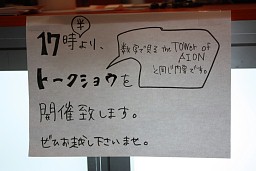 半
17時より、
数学で見る the TOWER of
AION
と同じ内容です。
トークショウを
開催致します。
ぜひお越し下さいませ。